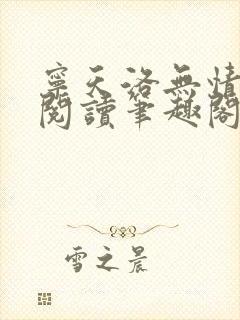 寧天洛無情
閱讀筆趣閣
雪之晨